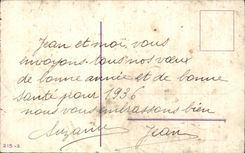 Jean et moi, vous
envoyons tous nos vœux
de bonne année et de bonne
santé pour 1936
nous vous embrassons bien
Suzanne Jean
215-3